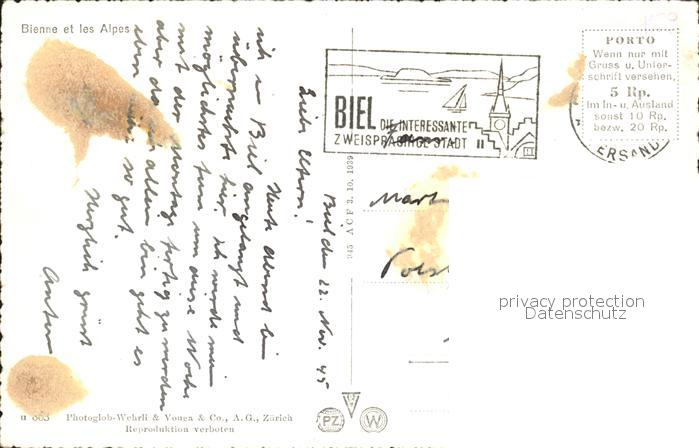 Bienne et les Alpes
BIEL DIE INTERESSANTE
ZWEISPRACHIGE STADT
PORTO
Wenn nur mit
Gruss u. Unter-
schrift versehen,
5 Rp.
im In- u. Ausland
sonst 10 Rp.
bezw. 20 Rp.
ERSAND
Biel den 22. Nov. 45
Liebe Eltern!
Heute Abend bin
ich in Biel angelangt und
übernachte hier. Ich werde mein
möglichstes tun um diese Woche
mit der Montage fertig zu werden
aber da allem hin geht es
so gut.
Herzlich grüsst
Anton
945 ACF 3. 10. 1939
privacy protection
Datenschutz
Photoglob-Wehrli & Vouga & Co., A. G., Zürich
Reproduktion verboten
PZ W